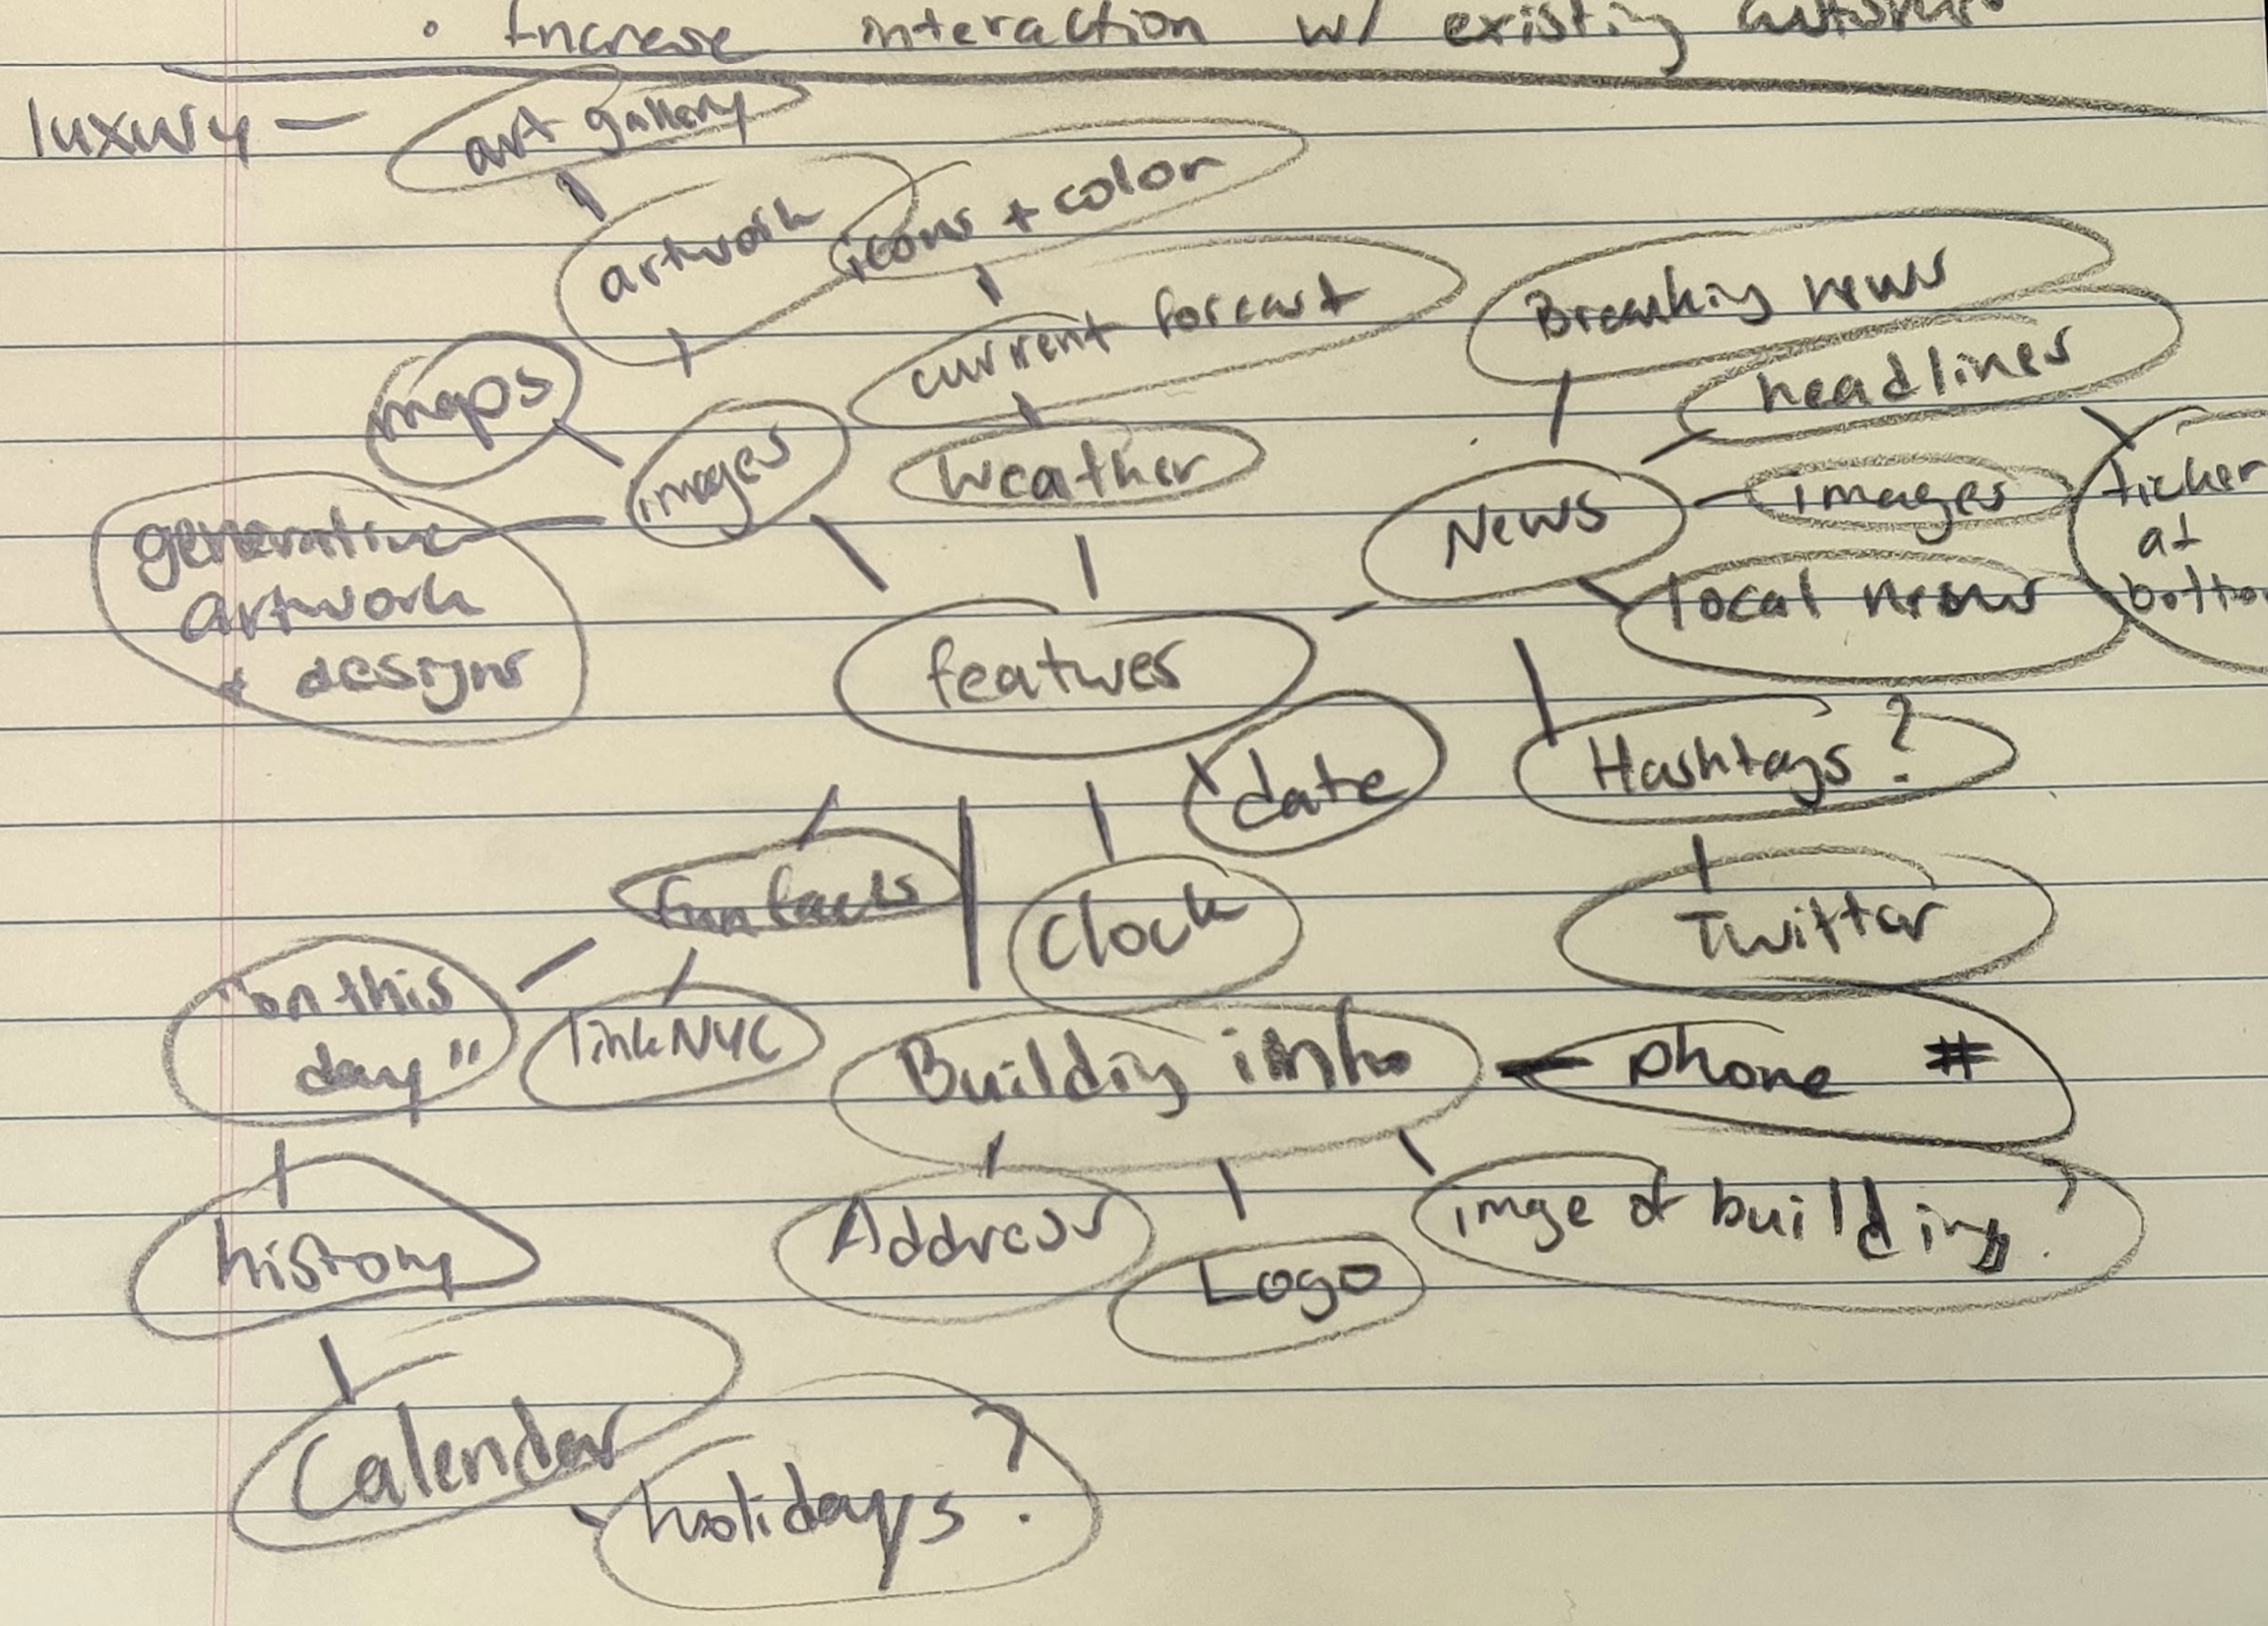 • Increase interaction w/ existing customers
luxury – art gallery
artwork
icons + color
current forcast
Breaking news
headlines
maps
images
Weather
News
images
ticker
at
bottom
generative
artwork
+ designs
local news
features
date
Hashtags?
fun facts
Clock
Twitter
"on this
day"
linkNYC
Building info
phone #
history
Address
Logo
image of building?
Calendar
holidays?